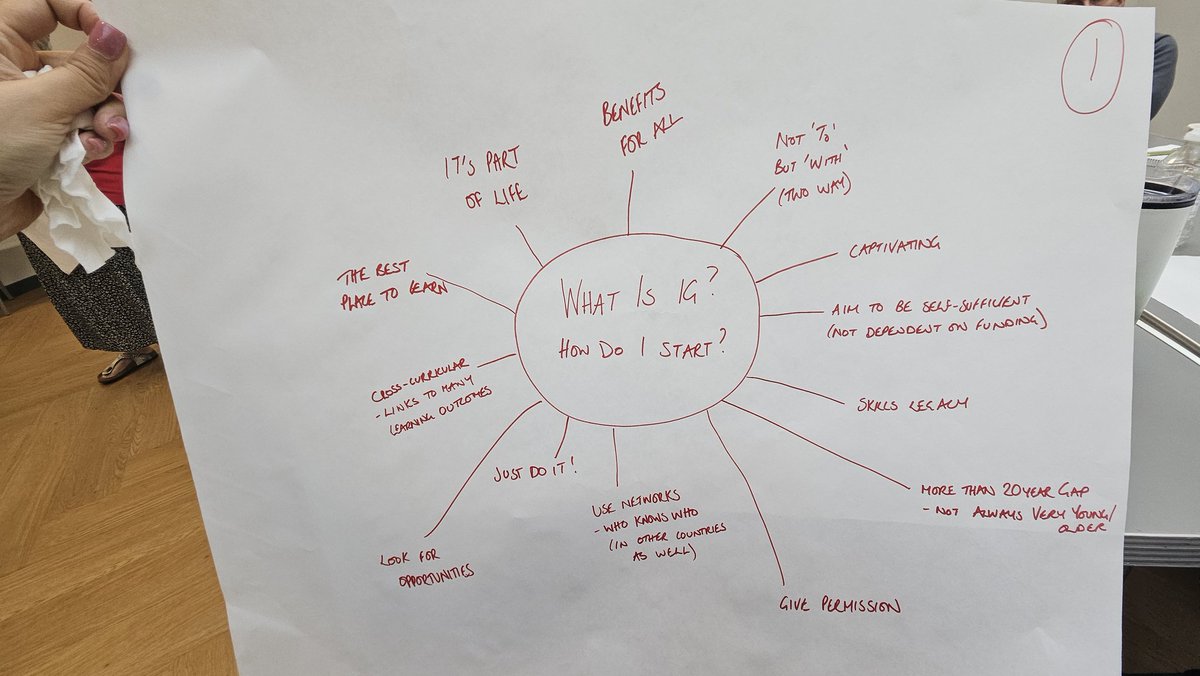 1
BENEFITS
FOR ALL
NOT 'TO'
BUT 'WITH'
(TWO WAY)
CAPTIVATING
AIM TO BE SELF-SUFFICIENT
(NOT DEPENDENT ON FUNDING)
SKILLS LEGACY
MORE THAN 20 YEAR GAP
- NOT ALWAYS VERY YOUNG/
OLDER
GIVE PERMISSION
USE NETWORKS
- WHO KNOWS WHO
(IN OTHER COUNTRIES
AS WELL)
JUST DO IT!
LOOK FOR
OPPORTUNITIES
CROSS-CURRICULAR
- LINKS TO MANY
LEARNING OUTCOMES
THE BEST
PLACE TO LEARN
IT'S PART
OF LIFE
WHAT IS IG?
HOW DO I START?